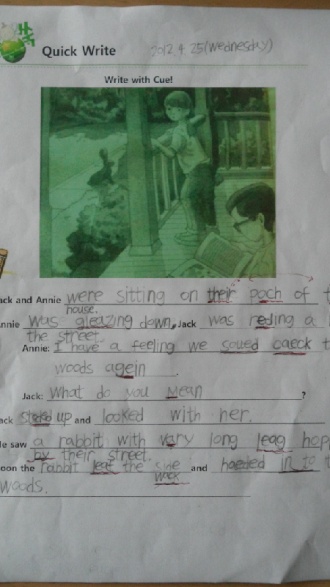 Quick Write 2012.4.25(wednesday)
Write with Cue!
ack and Annie were sitting on their poch of t
house.
nnie was gleazing down, Jack was reding a
the street.
Annie: I have a feeling we soued caeck t
woods agein.
Jack: What do you mean ?
ack stoked up and looked with her.
e saw a rabbit with vary long leag hopp
by their street.
oon the rabbit leaf the side and haeded in to t
walk
woods.